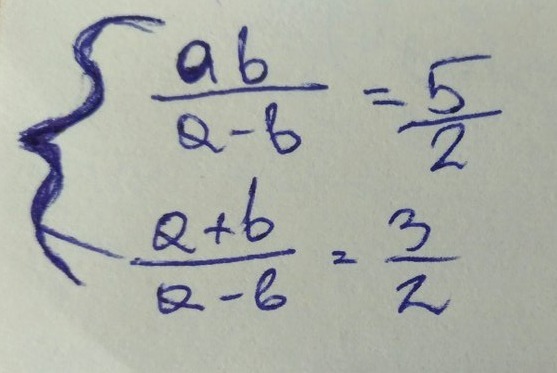 { ab / a-b = 5 / 2
a+b / a-b = 3 / 2